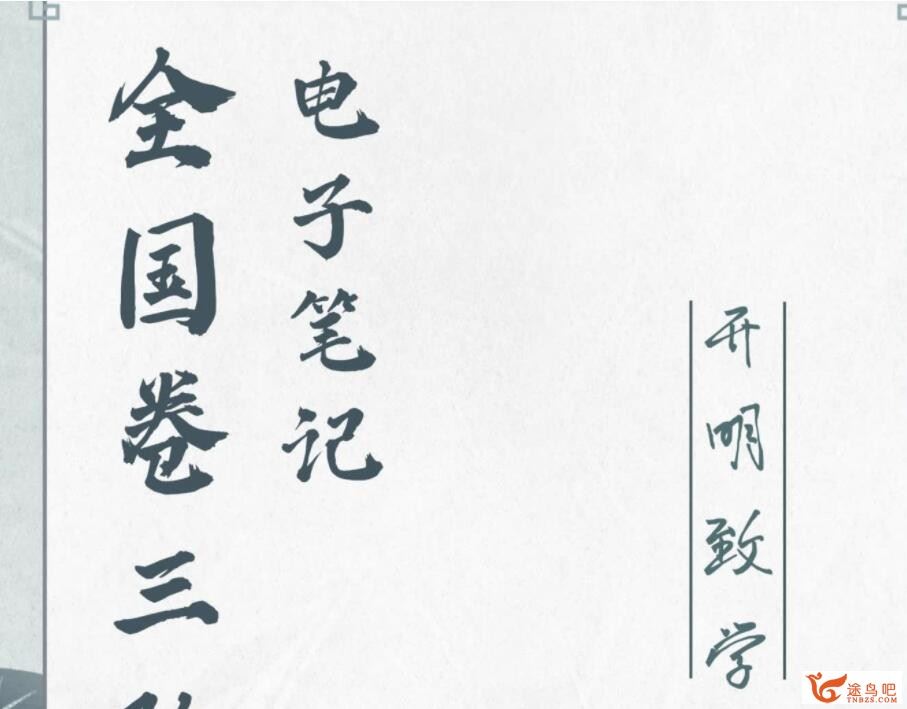 全国卷三
电子笔记
开明致学
途鸟吧
TNBZS.COM